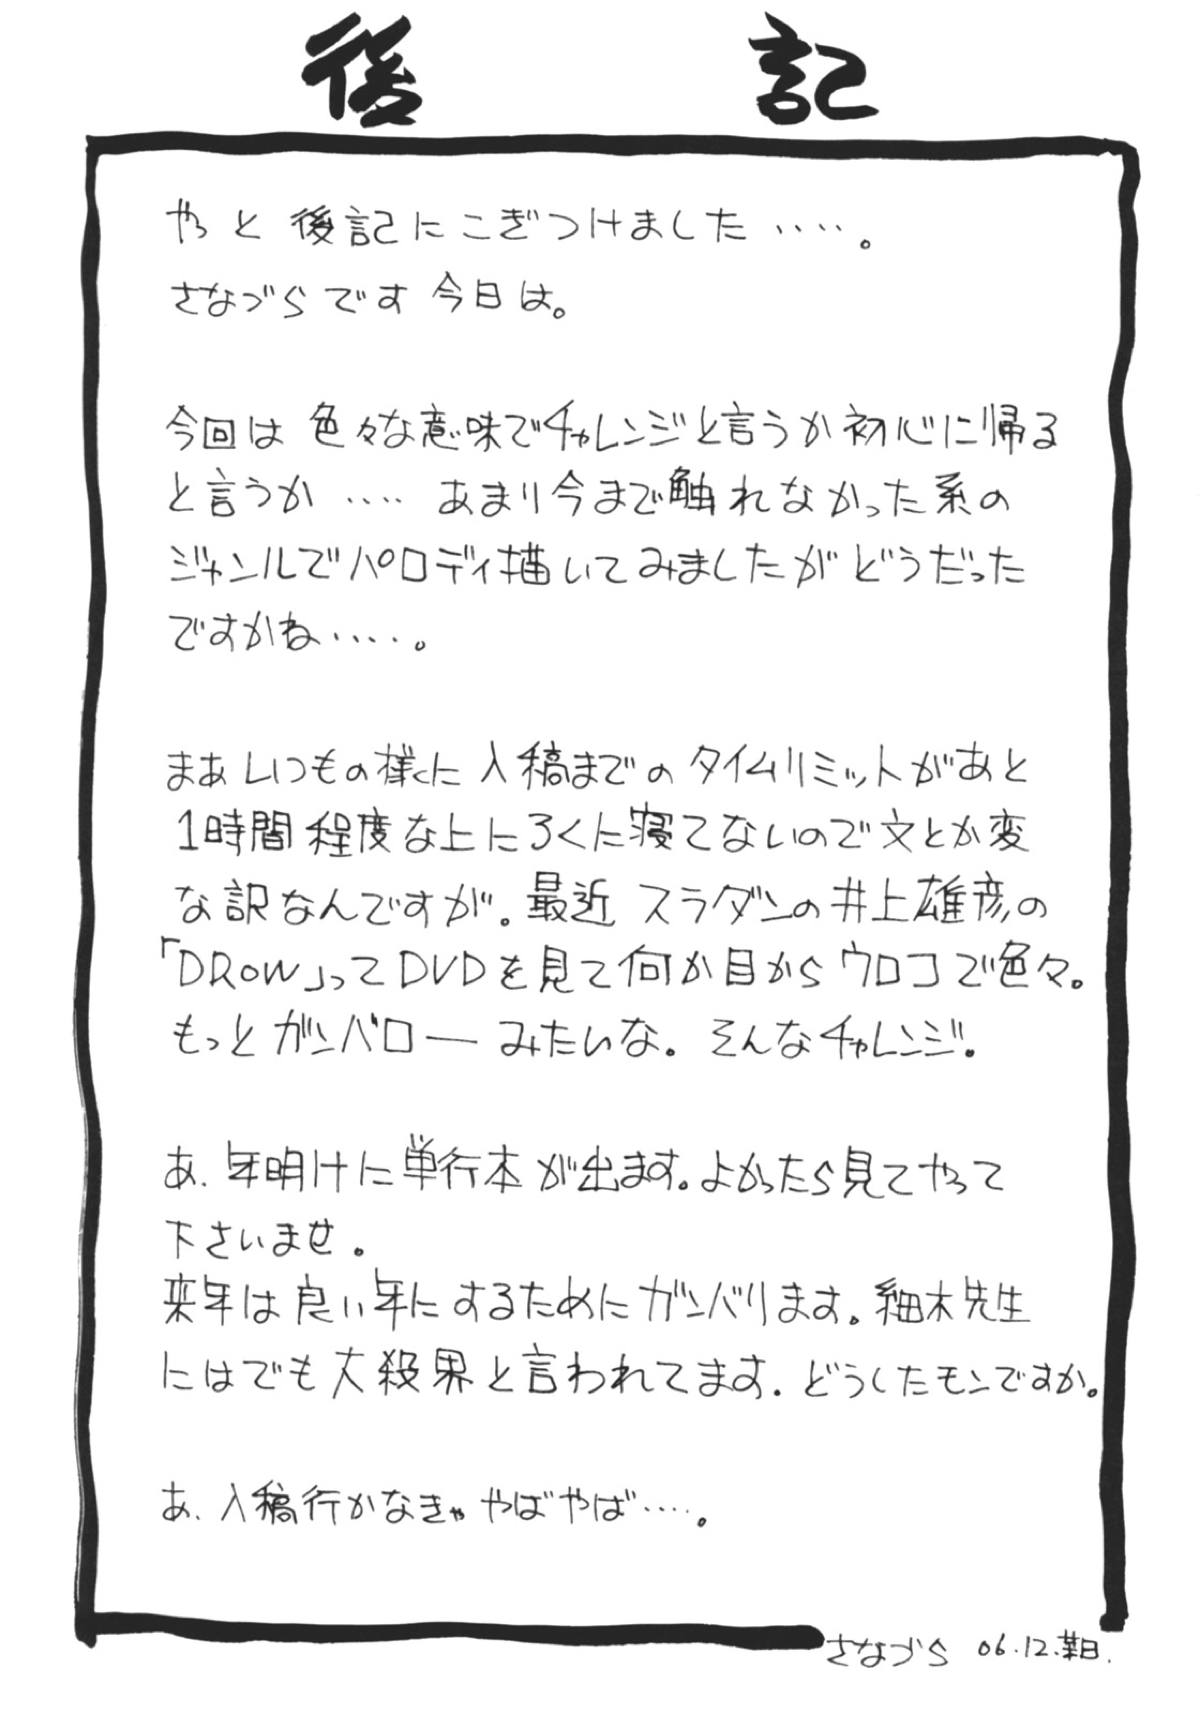 後記
やっと後記にこぎつけました‥‥。
さなづらです今日は。
今回は色々な意味でチャレンジと言うか初心に帰る
と言うか‥‥あまり今まで触れなかった系の
ジャンルでパロディ描いてみましたがどうだった
ですかね‥‥。
まあいつもの様に入稿までのタイムリミットがあと
1時間程度な上にろくに寝てないので文とか変
な訳なんですが。最近スラダンの井上雄彦の
「DROW」ってDVDを見て何か目からウロコで色々。
もっとガンバローみたいな。そんなチャレンジ。
あ、年明けに単行本が出ます。よかったら見てやって
下さいませ。
来年は良い年にするためにガンバります。細木先生
にはでも大殺界と言われてます。どうしたモンですか。
あ、入稿行かなきゃやばやば‥‥。
さなづら 06.12.某日.